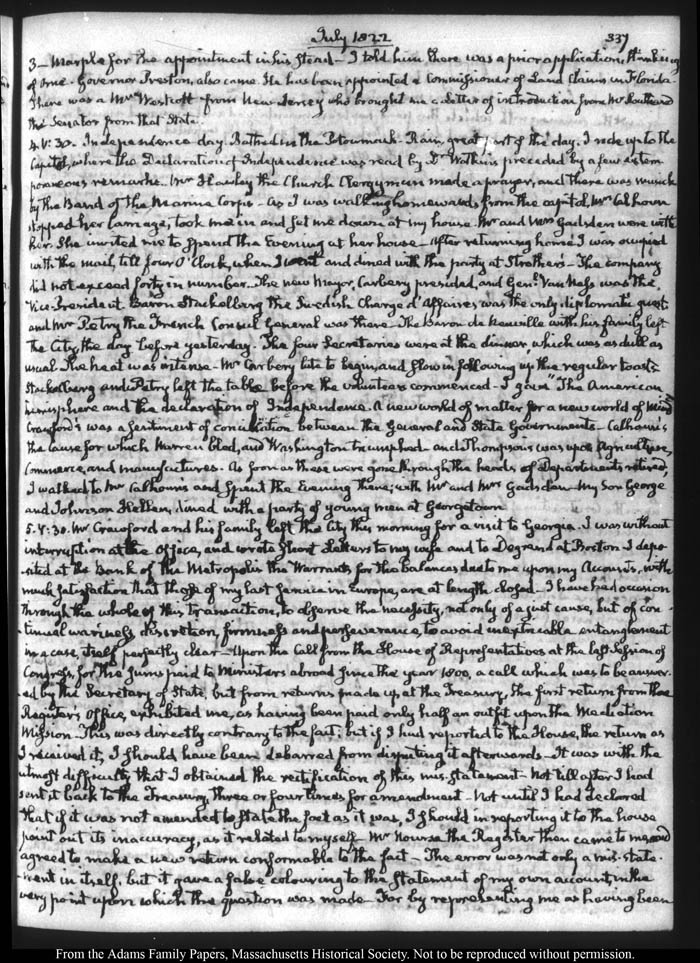 July 1822
337
3— Marple for the appointment in his Stead— I told him there was a prior application, Hawkins
of one— Governor Preston, also came. He has been appointed a Commissioner of Land Claims in Florida—
There was a Mr Westcott from New-Jersey who brought me a Letter of introduction from Mr Southard
the Senator from that State.
4. V: 30. Independence day. Bathed in the Potowmack— Rain, great part of the day. I rode up to the
Capitol, where the Declaration of Independence was read by Dr Watkins preceded by a few extem
poraneous remarks. Mr Hawley the Church Clergyman made a prayer, and there was musick
by the Band of the Marine Corps— As I was walking homewards from the Capitol, Mrs Calhoun
stopped her Carriage, took me in and set me down at my house. Mr and Mrs Gadsden were with
her. She invited me to spend the Evening at her house— After returning home I was occupied
with the mail, till four O'Clock, when I went and dined with the party at Strothers— The company
did not exceed forty in number. The new Mayor, Carbery presided, and Genl Van Ness was the
Vice-President. Baron Stackelberg the Swedish Chargé d'Affaires was the only diplomatic guest
and Mr Petry the French Consul General was there. The Baron de Neuville with his family left
the City, the day before yesterday. The four Secretaries were at the dinner, which was as dull as
usual. The heat was intense— Mr Carbery late to begin, and slow in following up the regular toasts—
Stackelberg and Petry left the table before the volunteers commenced— I gave "The American
hemisphere and the declaration of Independence. A new world of matter for a new world of Mind
Crawford's was a sentiment of conciliation between the General and State Governments— Calhoun's
the cause for which Warren bled, and Washington triumphed— and Thompson's was upon Agriculture,
Commerce, and manufactures. As soon as these were gone through the heads of Departments retired,
I walked to Mr Calhoun's and spent the Evening there; with Mr and Mrs Gadsden— My Son George
and Johnson Hellen, dined with a party of young men at Georgetown
5. V: 30. Mr Crawford and his family left the City this morning for a visit to Georgia. I was without
interruption at the Office, and wrote short Letters to my wife and to Degrand at Boston— I depo-
sited at the Bank of the Metropolis the Warrants for the balances due to me upon my Accounts, with
much satisfaction that those of my last service in Europe, are at length closed— I have had occasion
through the whole of this transaction, to observe the necessity, not only of a just cause, but of con
tinual wariness, discretion, firmness and perseverance, to avoid inextricable entanglement
in a case, itself perfectly clear— Upon the Call from the House of Representatives at the last Session of
Congress, for the sums paid to Ministers abroad since the year 1800, a call which was to be answer-
ed by the Secretary of State, but from returns made up at the Treasury, the first return from the
Register's Office, exhibited me, as having been paid only half an outfit upon the Mediation
Mission— This was directly contrary to the fact; but if I had reported to the House, the return as
I received it, I should have been debarred from disputing it afterwards— It was with the
utmost difficulty that I obtained the rectification of this mis-statement— Not till after I had
sent it back to the Treasury, three or four times for amendment— Not until I had declared
that if it was not amended to state the fact as it was, I should in reporting it to the house
point out its inaccuracy, as it related to myself— Mr Nourse the Register then came to me, and
agreed to make a new return conformable to the fact— The error was not only a mis-state-
ment in itself, but it gave a false colouring to the Statement of my own account, in the
very point upon which the question was made— For by representing me as having been
From the Adams Family Papers, Massachusetts Historical Society. Not to be reproduced without permission.